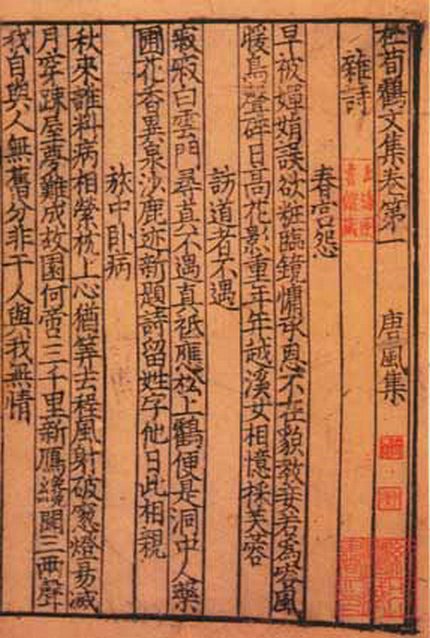 杜荀鶴文集卷第一 唐風集
雜詩
上海圖書館藏
春宮怨
早被嬋娟誤欲粧臨鏡慵承恩不在貌教妾若為容風
暖鳥聲碎日高花影重年年越溪女相憶採芙蓉
訪道者不遇
寂寂白雲門尋真不遇真秪應松上鶴便是洞中人藥
圃花香異泉沙鹿迹新題詩留姓字他日此相親
旅中卧病
秋來誰料病相縈枕上心猶筭去程風射破窓燈易滅
月穿踈屋夢難成故園何啻三千里新鴈纔聞三兩聲
我自與人無舊分非干人與我無情